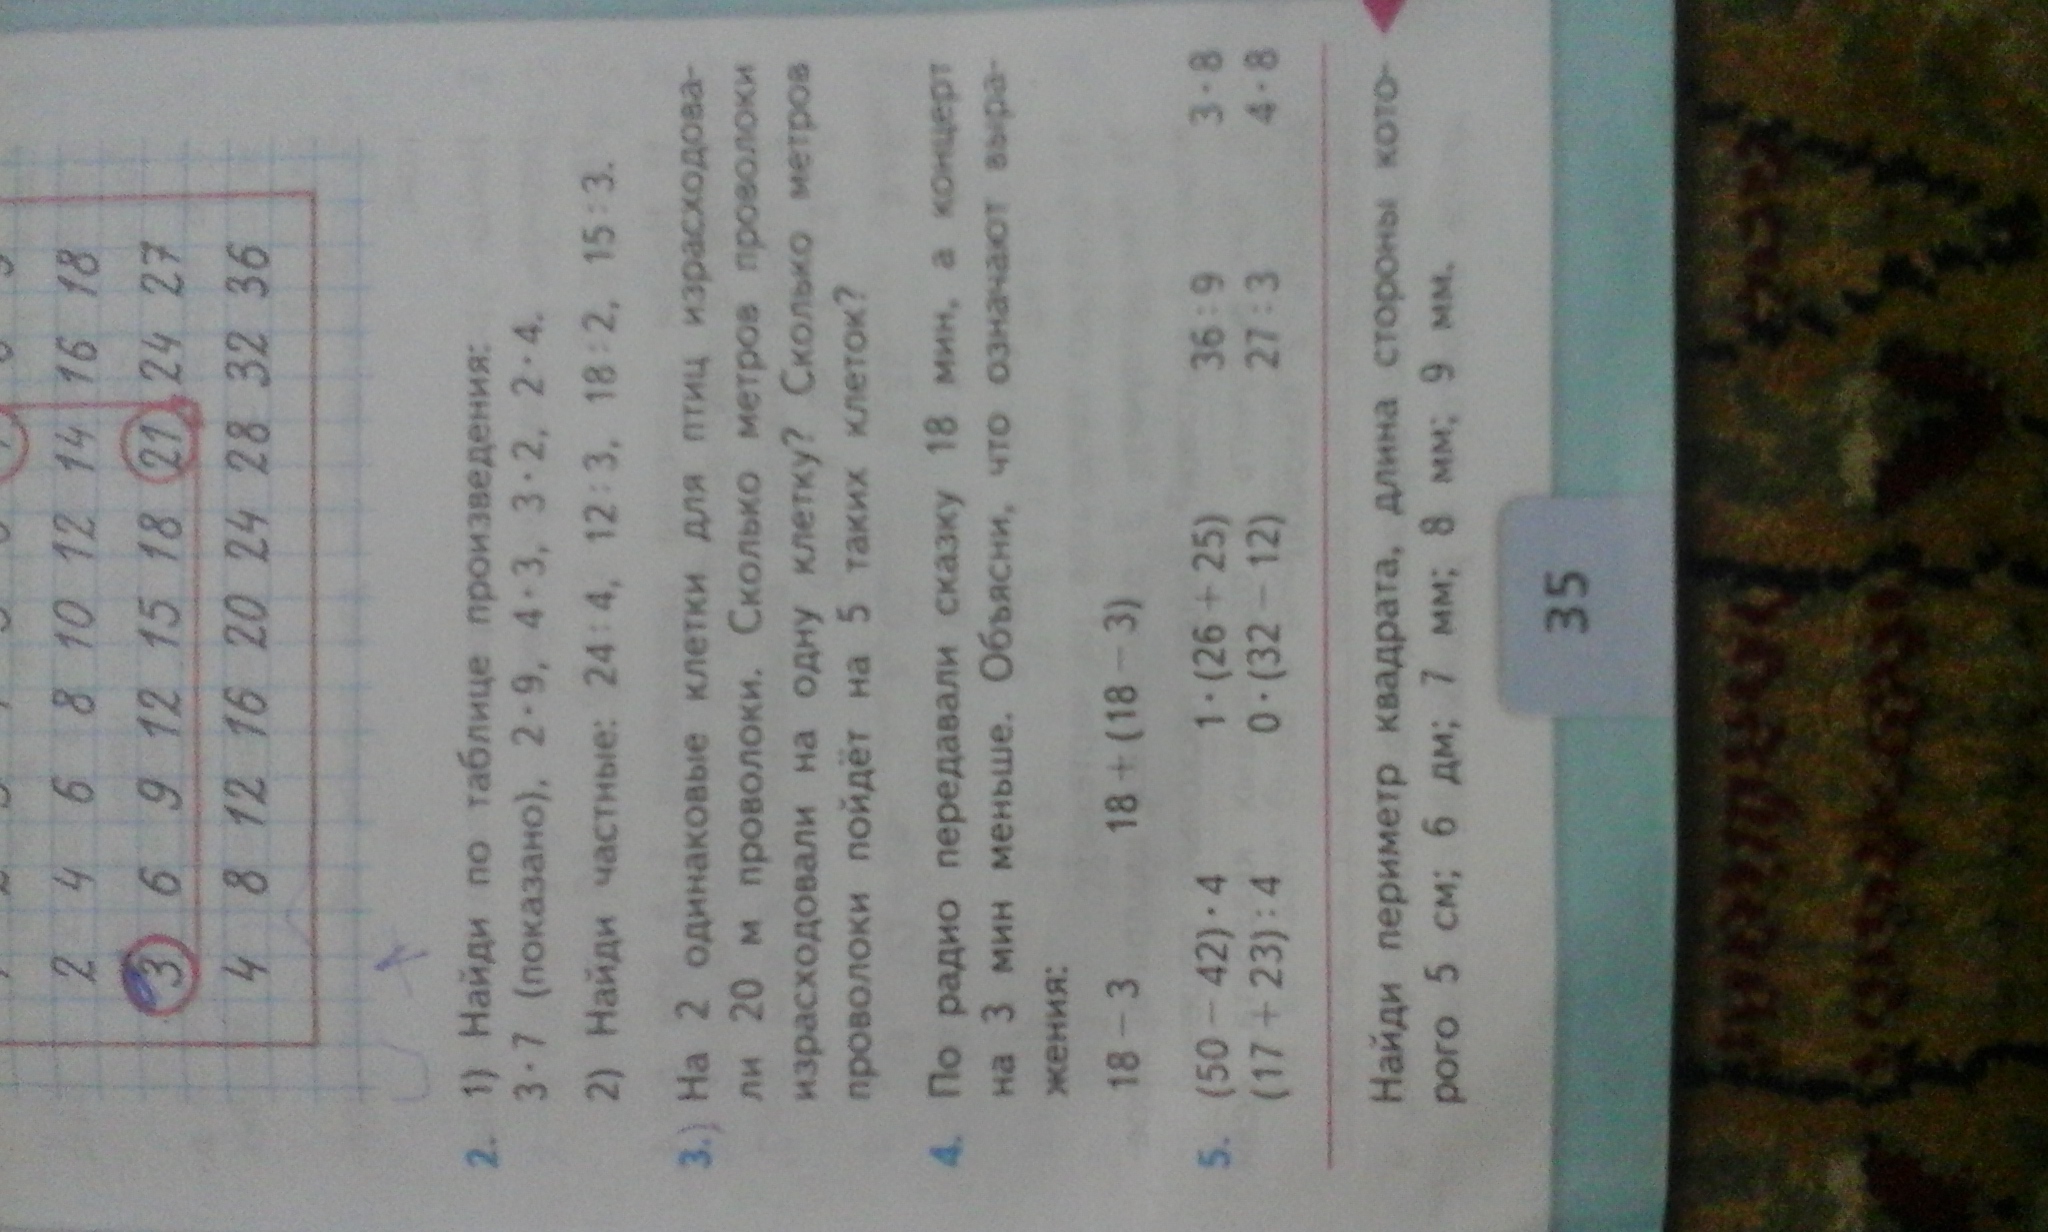 2 4 6 8 10 12 14 16 18
3 6 9 12 15 18 21 24 27
4 8 12 16 20 24 28 32 36
2. 1) Найди по таблице произведения:
3·7 (показано), 2·9, 4·3, 3·2, 2·4.
2) Найди частные: 24:4, 12:3, 18:2, 15:3.
3.) На 2 одинаковые клетки для птиц израсходова-
ли 20 м проволоки. Сколько метров проволоки
израсходовали на одну клетку? Сколько метров
проволоки пойдёт на 5 таких клеток?
4. По радио передавали сказку 18 мин, а концерт
на 3 мин меньше. Объясни, что означают выра-
жения:
18 − 3 18 + (18 − 3)
5. (50 − 42)·4 1·(26 + 25) 36:9 3·8
(17 + 23):4 0·(32 − 12) 27:3 4·8
Найди периметр квадрата, длина стороны кото-
рого 5 см; 6 дм; 7 мм; 8 мм; 9 мм.
35